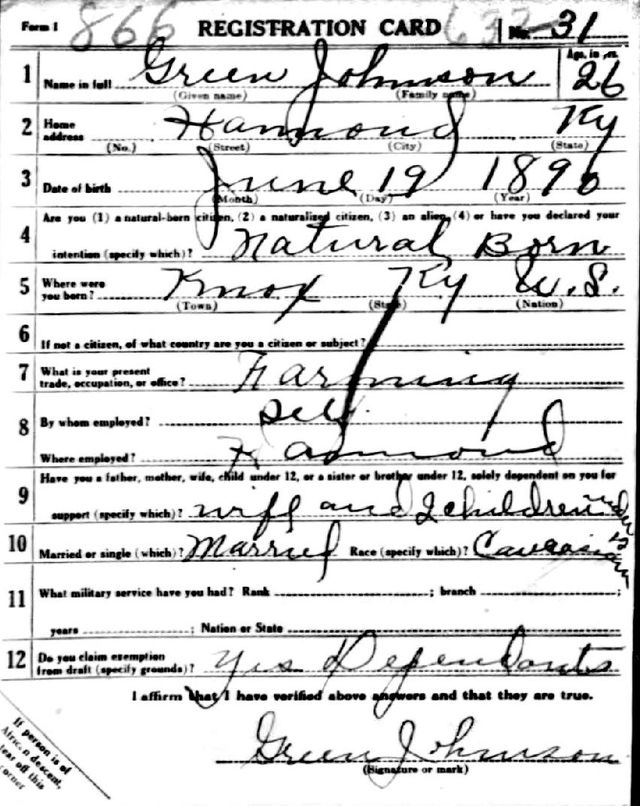 Form 1 866 REGISTRATION CARD 633 No. 31
1 Name in full Green Johnson Age, in yrs. 26
(Given name) (Family name)
2 Home address Hammond Ky
(No.) (Street) (City) (State)
3 Date of birth June 19 1890
(Month) (Day) (Year)
4 Are you (1) a natural-born citizen, (2) a naturalized citizen, (3) an alien, (4) or have you declared your
intention (specify which)? Natural Born
5 Where were you born? Knox Ky U.S.
(Town) (State) (Nation)
6 If not a citizen, of what country are you a citizen or subject?
7 What is your present trade, occupation, or office? Farming
8 By whom employed? Self
Where employed? Hammond
9 Have you a father, mother, wife, child under 12, or a sister or brother under 12, solely dependent on you for
support (specify which)? wife and 2 children under 12
10 Married or single (which)? Married Race (specify which)? Caucasian
11 What military service have you had? Rank ; branch ;
years ; Nation or State
12 Do you claim exemption from draft (specify grounds)? Yes Dependants
I affirm that I have verified above answers and that they are true.
Green Johnson
(Signature or mark)
If person is of
African descent,
tear off this
corner